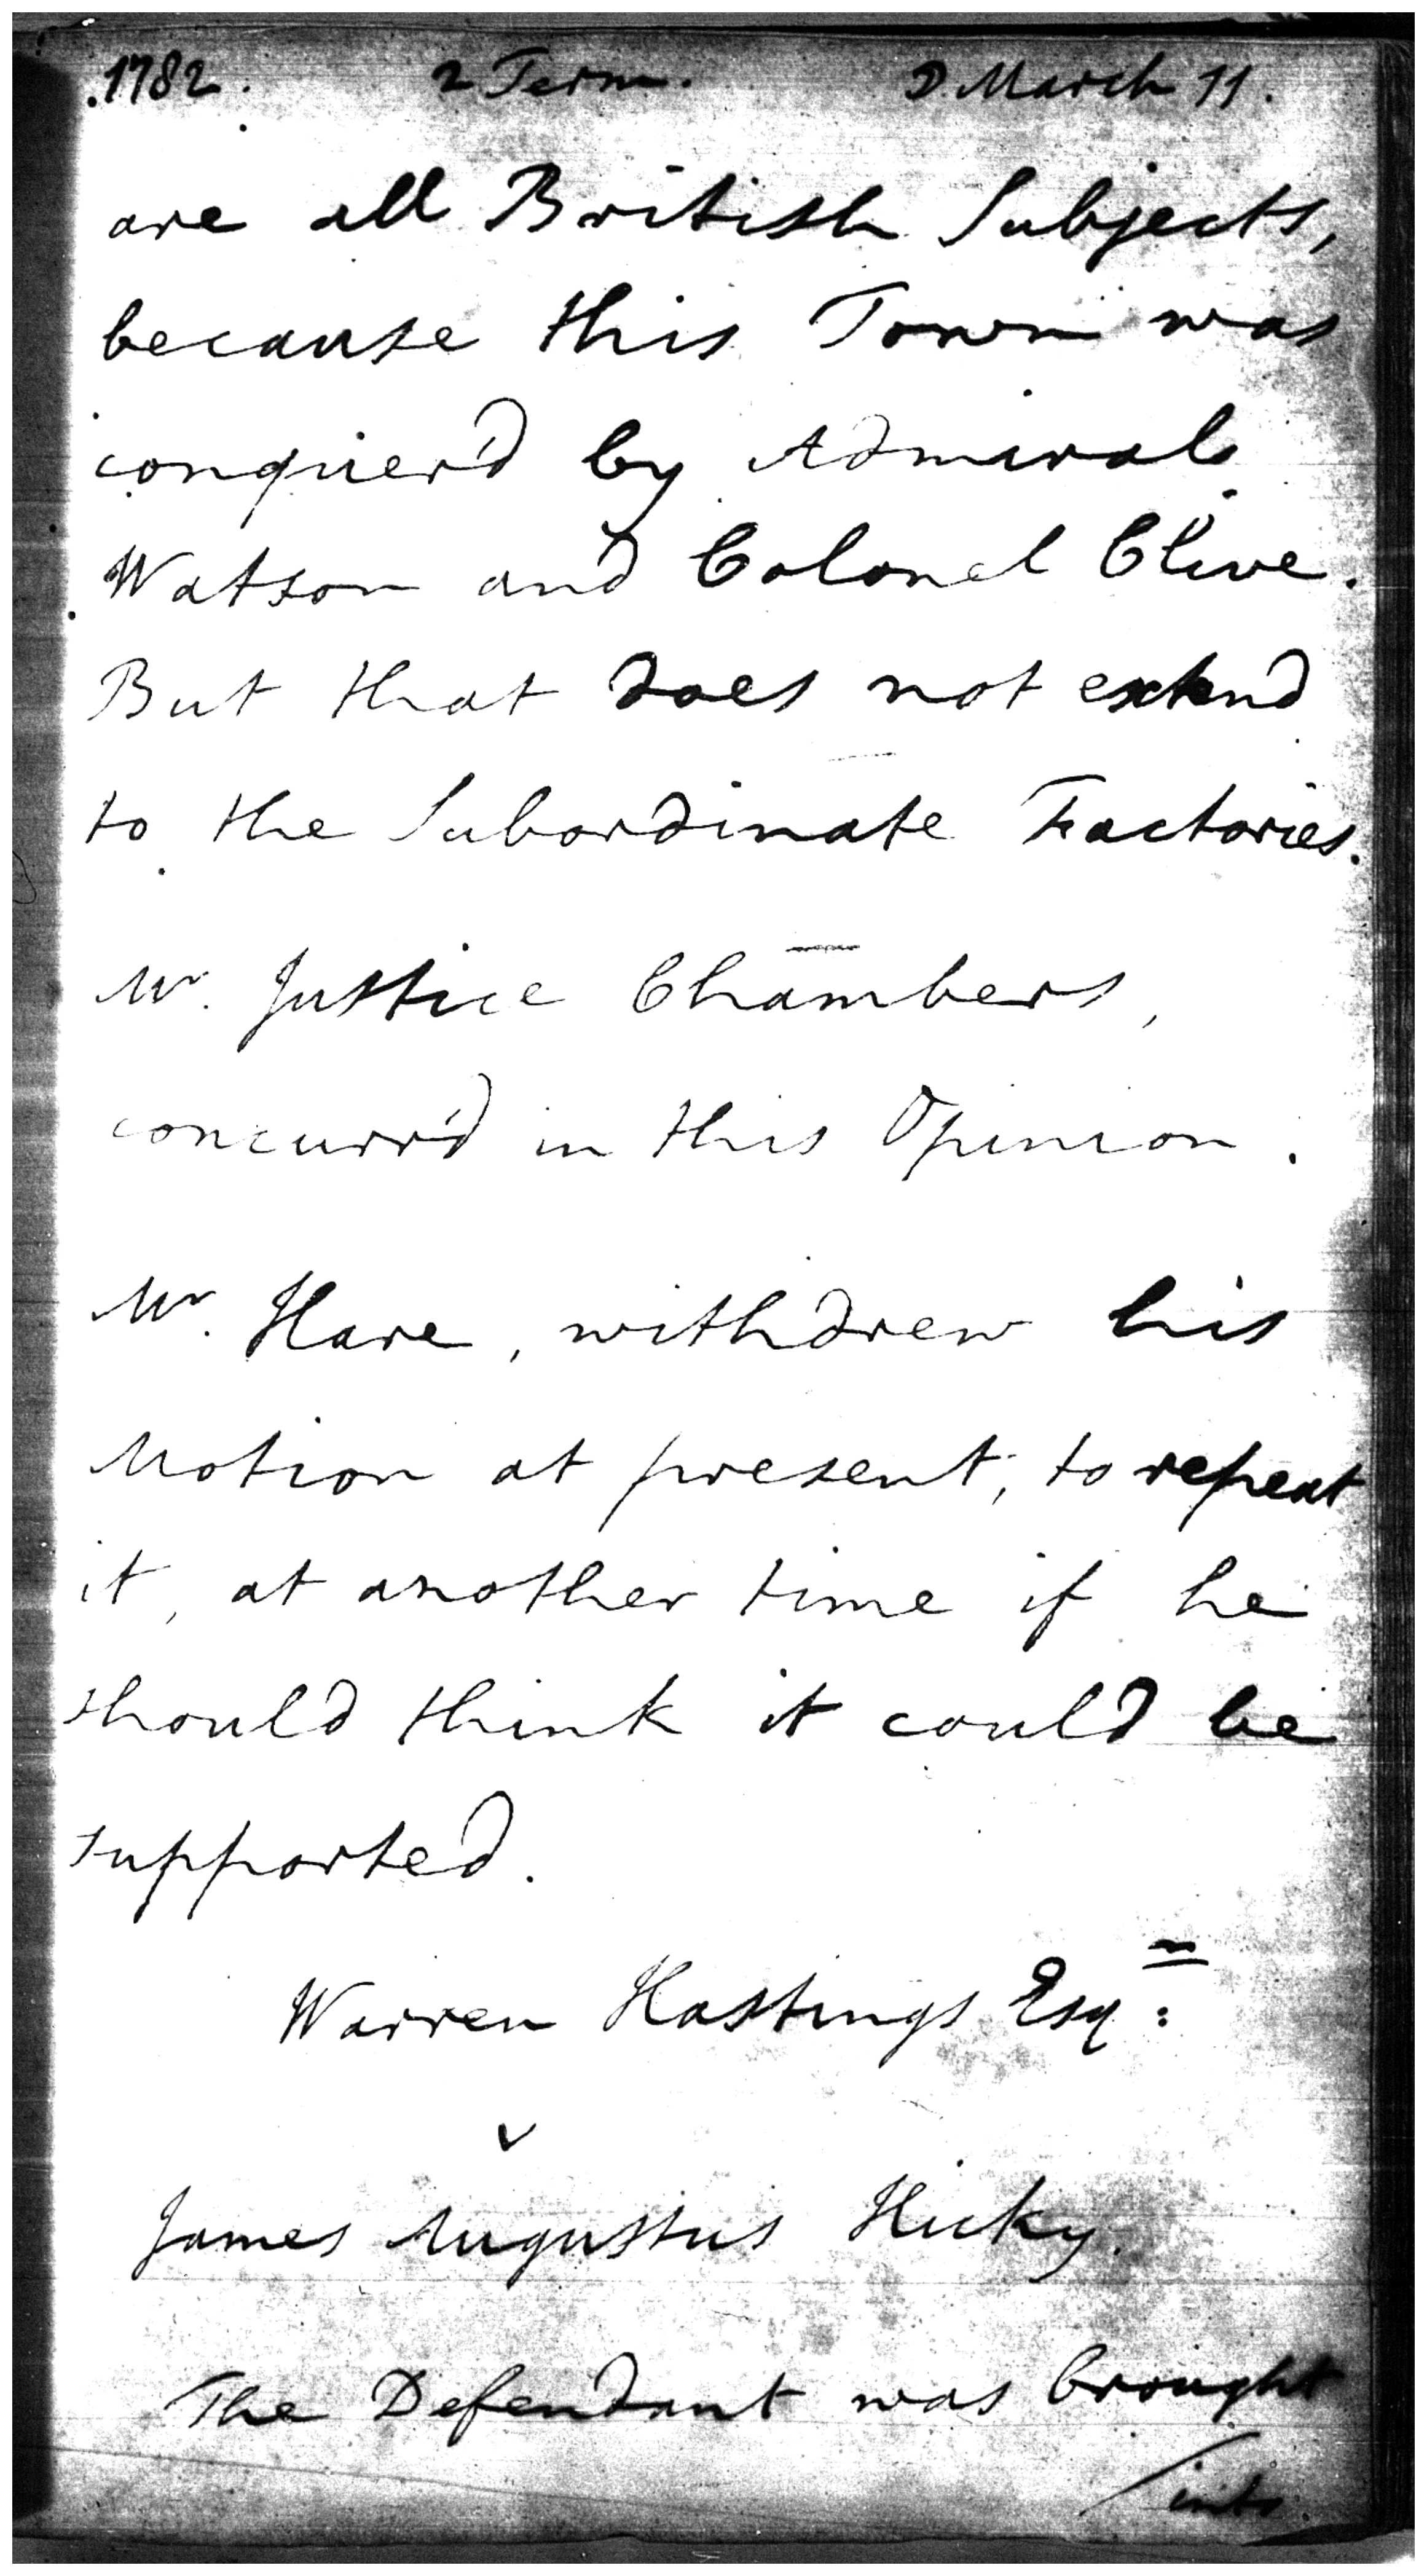 1782. 2 Term. D. March 11.
are all British Subjects,
because this Town was
conquer'd by Admiral
Watson and Colonel Clive.
But that does not extend
to the Subordinate Factories.
Mr. Justice Chambers,
concurr'd in this Opinion.
Mr. Hare, withdrew his
Motion at present, to repeat
it, at another time if he
should think it could be
supported.
Warren Hastings Esqr:
v
James Augustus Hicky.
The Defendant was brought
/into